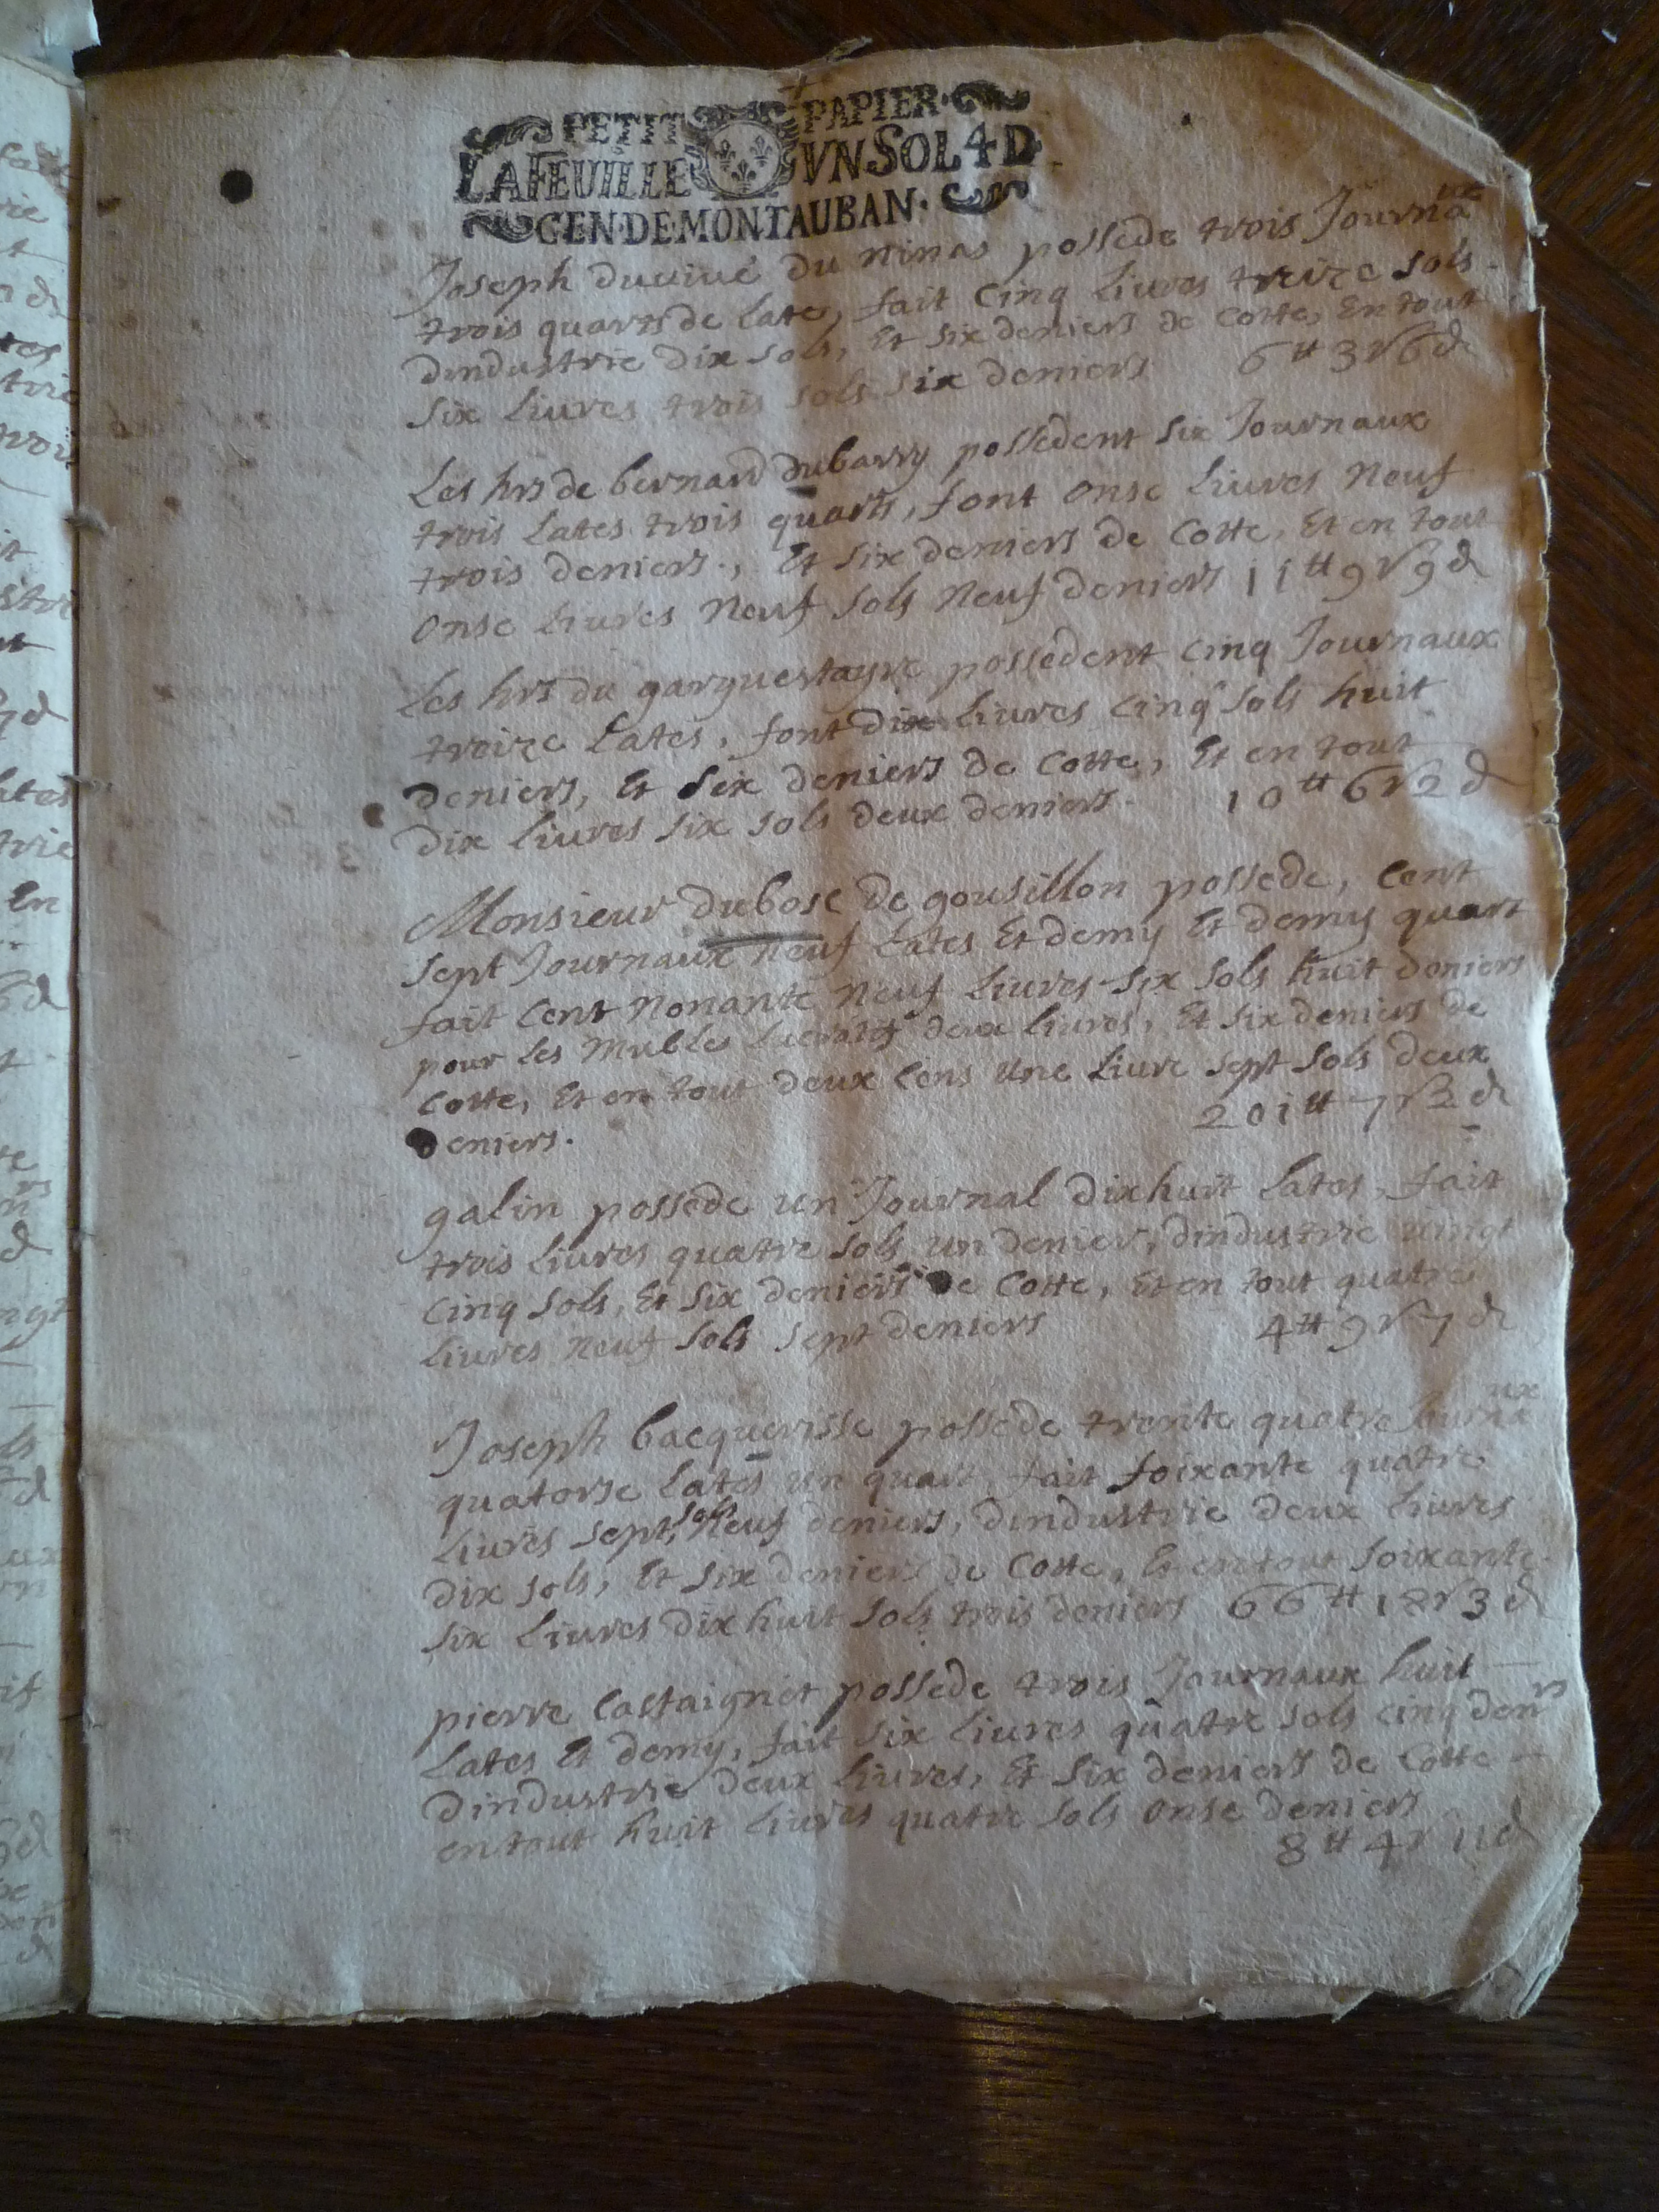 PETIT PAPIER
LA FEUILLE VN SOL 4 D
GEN·DE·MONTAUBAN·
Joseph duviué du minas possede trois Journaux
trois quarts de late, fait Cinq livres treize sols
dindustrie dix sols, Et six deniers de Cotte, En tout
six livres trois sols six deniers 6ᵗᵗ 3ſ 6d
Les hrs de bernard dubarry possedent six Journaux
trois lates trois quarts, font onse livres Neuf
trois deniers., Et six deniers de Cotte, Et en tout
onse livres Neuf sols Neuf deniers 11ᵗᵗ 9ſ 9d
Les hrs du garguestayre possedent cinq Journaux
treize lates, font dix livres Cinq sols huit
deniers, Et six deniers de Cotte, Et en tout
dix livres six sols deux deniers. 10ᵗᵗ 6ſ 2d
Monsieur dubosc de gousillon possede, Cent
sept Journaux neuf lates Et demy Et demy quart
fait Cent Nonante Neuf livres six sols huit deniers
pour les Mubles Lucratifs deux livres, Et six deniers de
Cotte, Et en tout deux Cens une livre sept sols deux
deniers. 201ᵗᵗ 7ſ 2d
galin possede un Journal dixhuit lates, fait
trois livres quatre sols un denier, dindustrie vingt
cinq sols, Et six deniers de Cotte, Et en tout quatre
livres neuf sols sept deniers 4ᵗᵗ 9ſ 7d
Joseph bacquerisse possede trente quatre Journaux
quatorse lates un quart fait soixante quatre
livres sept sols Neuf deniers, dindustrie deux livres
dix sols, Et six deniers de Cotte, Et en tout soixante
six livres dix huit sols trois deniers 66ᵗᵗ 18ſ 3d
pierre Castaignet possede trois Journaux huit
lates Et demy, fait six livres quatre sols cinq denrs
dindustrie deux livres, Et six deniers de Cotte
en tout huit livres quatre sols onse deniers
8ᵗᵗ 4ſ 11d